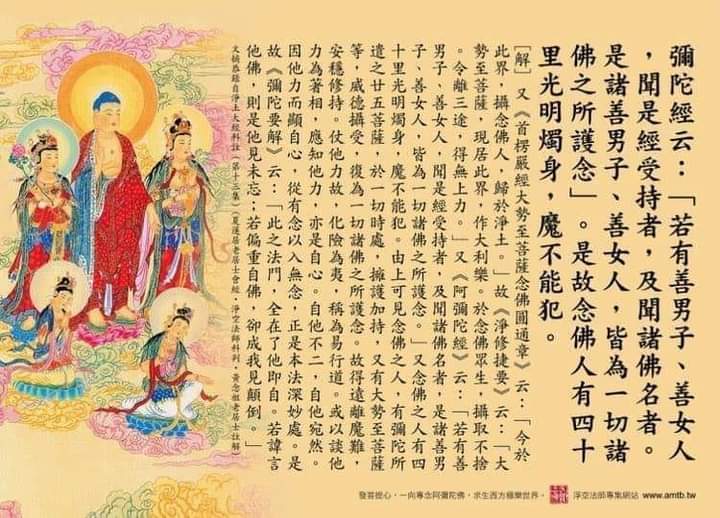 彌陀經云:「若有善男子、善女人
,聞是經受持者,及聞諸佛名者。
是諸善男子、善女人,皆為一切諸
佛之所護念」。是故念佛人有四十
里光明燭身,魔不能犯。
[解] 又《首楞嚴經大勢至菩薩念佛圓通章》云:「今於
此界,攝念佛人,歸於淨土。」故《淨修捷要》云:「大
勢至菩薩,現居此界,作大利樂。於念佛眾生,攝取不捨
。令離三途,得無上力。」又《阿彌陀經》云:「若有善
男子、善女人,聞是經受持者,及聞諸佛名者,是諸善男
子、善女人,皆為一切諸佛之所護念。」又念佛之人有四
十里光明燭身,魔不能犯。由上可見念佛之人,有彌陀所
遣之廿五菩薩,於一切時處,擁護加持,又有大勢至菩薩
等,威德攝受,復為一切諸佛之所護念。故得遠離魔難,
安穩修持。仗他力故,化險為夷,稱為易行道。或以談他
力為著相,應知他力,亦是自心。自他不二,自他宛然。
因他力而顯自心,從有念以入無念,正是本法深妙處。是
故《彌陀要解》云:「此之法門,全在了他即自。若諱言
他佛,則是他見未忘;若偏重自佛,卻成我見顛倒。」
文摘恭錄自淨土大經科註(第十三集)(夏蓮居老居士會經‧淨空法師科判‧黃念祖老居士註解)
發菩提心,一向專念阿彌陀佛,求生西方極樂世界。
淨空法師專集網站 www.amtb.tw